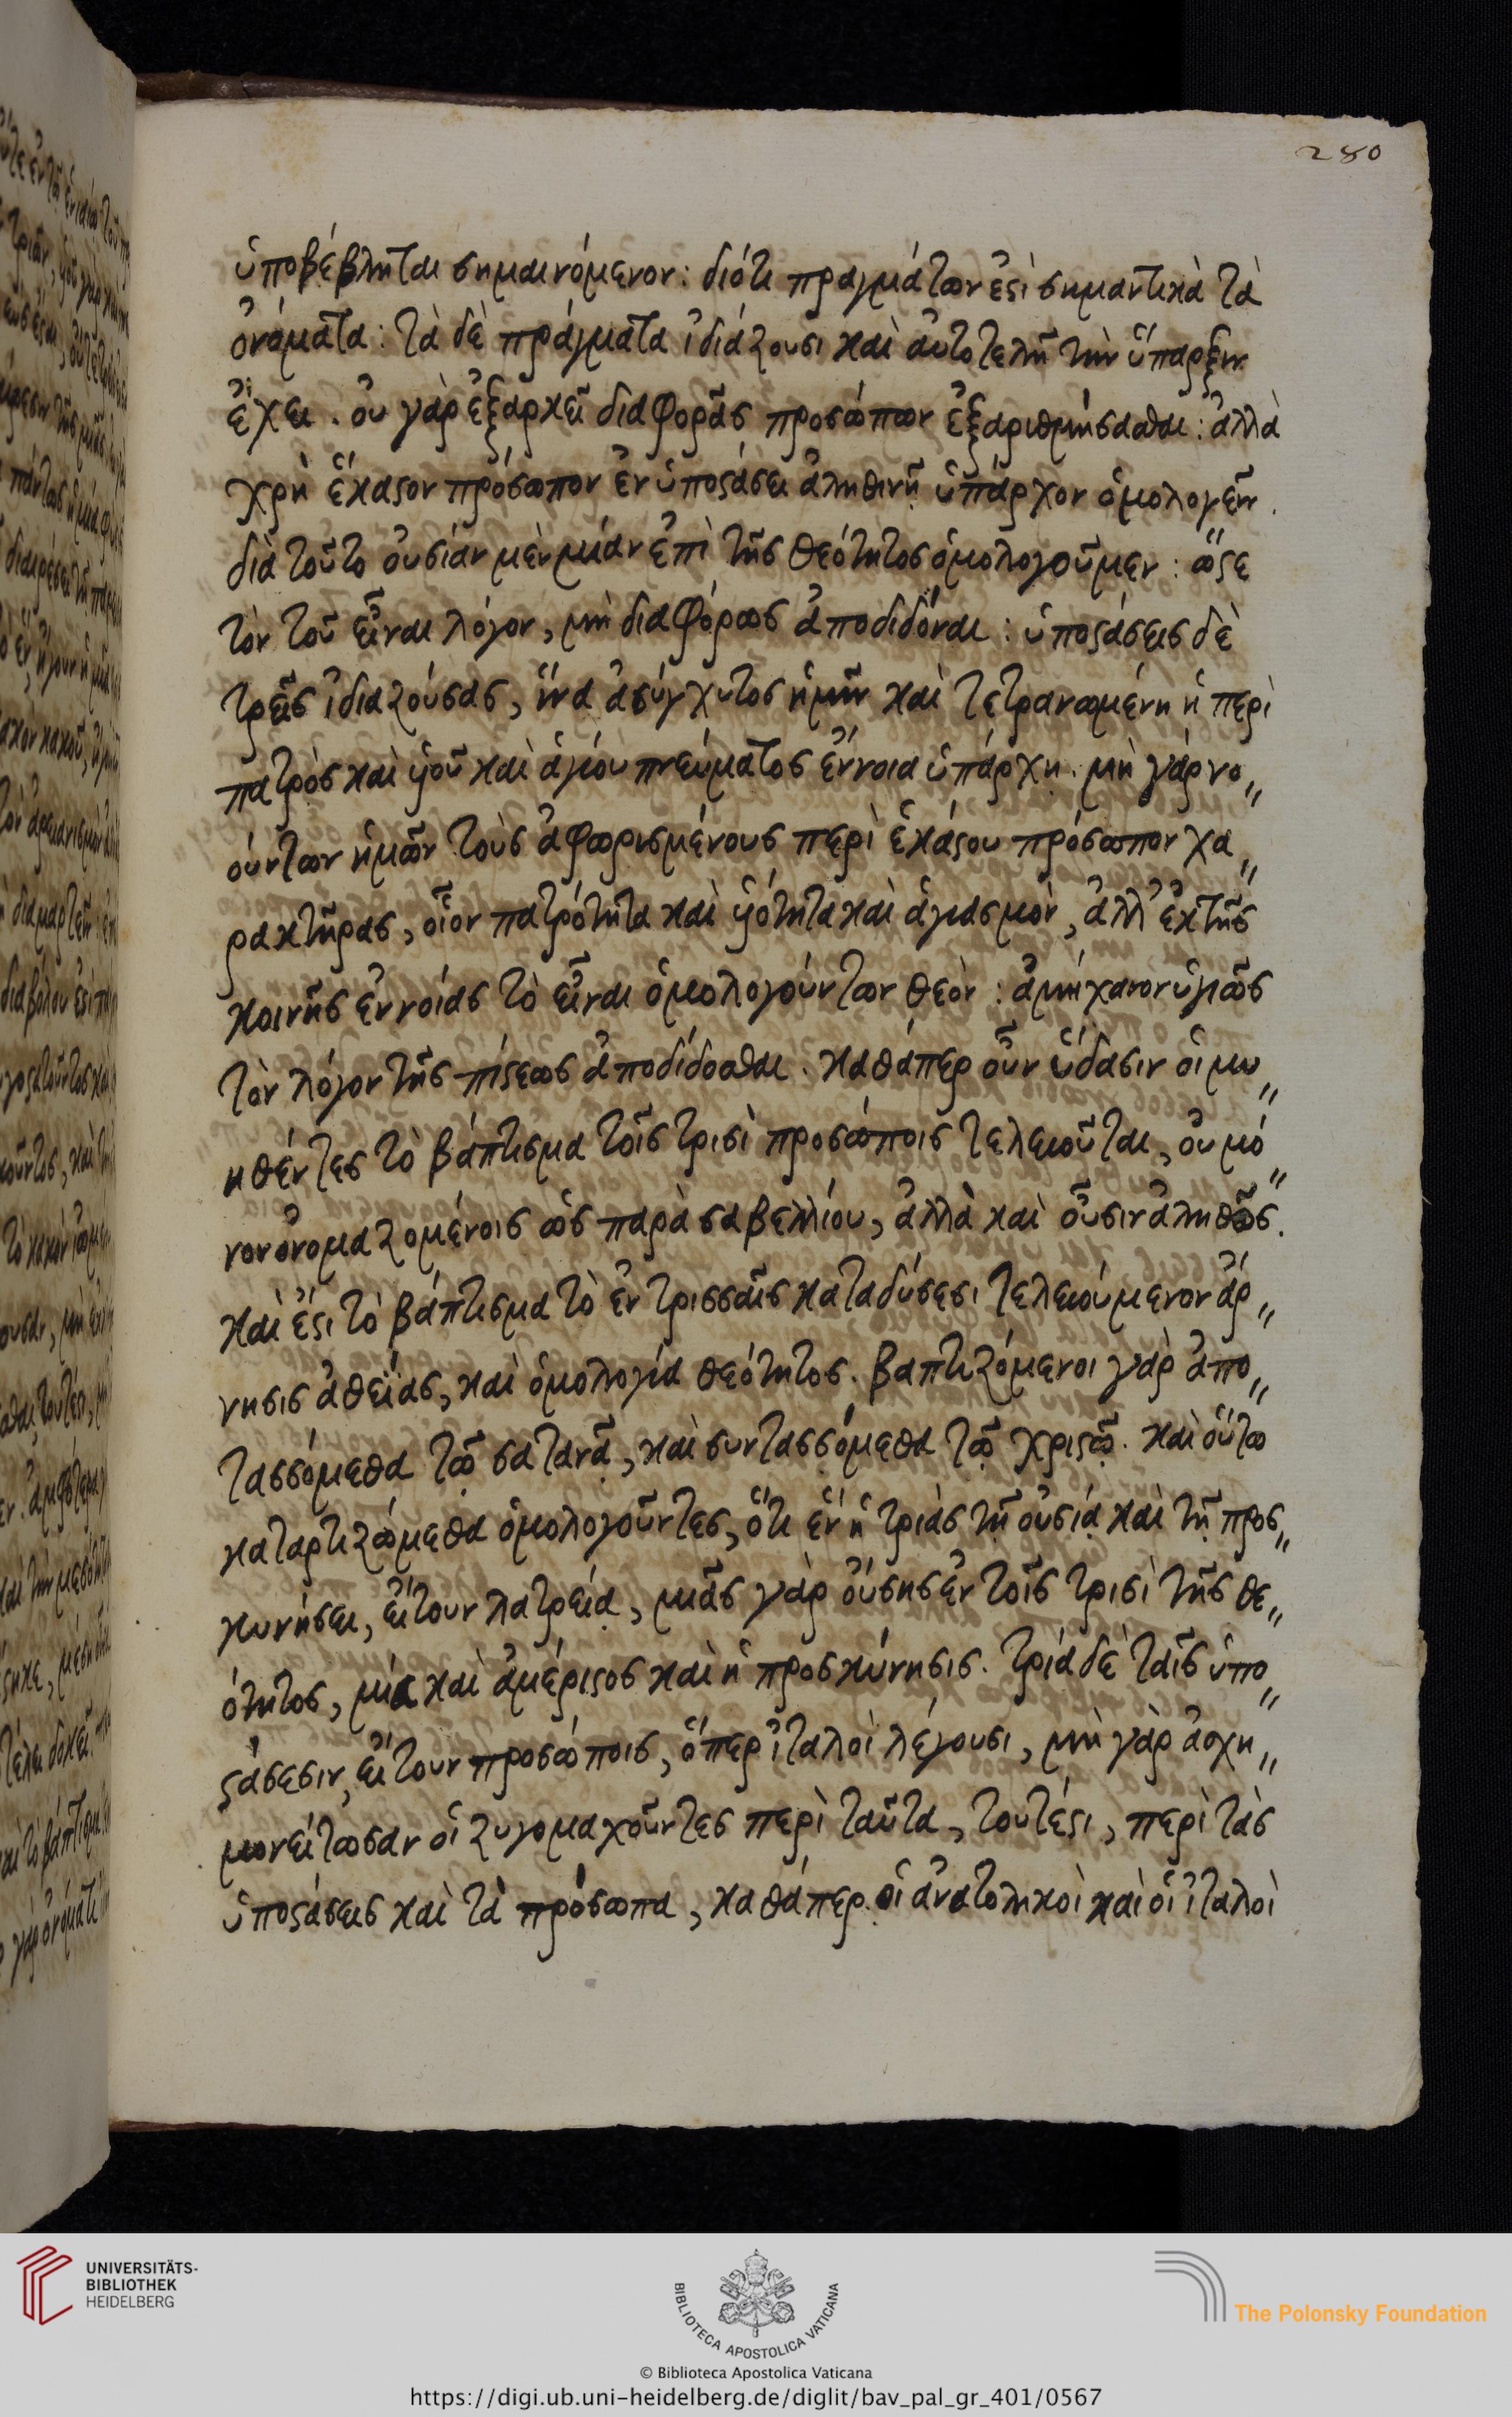 280
ὑποβέβληται σημαινόμενον: διότι πραγμάτων ἐστὶ σημαντικὰ τὰ
ὀνόματα: τὰ δὲ πράγματα ἰδιάζουσι καὶ αὐτοτελῆ τὴν ὕπαρξιν
ἔχει. οὐ γὰρ ἐξαρκεῖ διαφορᾶς προσώπων ἐξαριθμήσασθαι: ἀλλὰ
χρὴ ἕκαστον πρόσωπον ἐν ὑποστάσει ἀληθινῇ ὑπάρχον ὁμολογεῖν.
διὰ τοῦτο οὐσίαν μὲν μίαν ἐπὶ τῆς θεότητος ὁμολογοῦμεν: ὥστε
τὸν τοῦ εἶναι λόγον, μὴ διαφόρως ἀποδιδόναι: ὑποστάσεις δὲ
τρεῖς ἰδιαζούσας, ἵνα ἀσύγχυτος ἡμῖν καὶ τετρανωμένη ἡ περὶ
πατρὸς καὶ υἱοῦ καὶ ἁγίου πνεύματος ἔννοια ὑπάρχῃ. μὴ γὰρ νο„
ούντων ἡμῶν τοὺς ἀφωρισμένους περὶ ἑκάστου πρόσωπον χα„
ρακτῆρας, οἷον πατρότητα καὶ υἱότητα καὶ ἁγιασμὸν, ἀλλ' ἐκ τῆς
κοινῆς ἐννοίας τὸ εἶναι ὁμολογούντων θεὸν: ἀμήχανον ὑγιῶς
τὸν λόγον τῆς πίστεως ἀποδίδοσθαι. καθάπερ οὖν ὕδασιν οἱ μυ„
ηθέντες τὸ βάπτισμα τοῖς τρισὶ προσώποις τελειοῦται, οὐ μό„
νον ὀνομαζομένοις ὡς παρὰ σαβελλίου, ἀλλὰ καὶ οὖσιν ἀληθῶς.
καὶ ἔστι τὸ βάπτισμα τὸ ἐν τρισσαῖς καταδύσεσι τελειούμενον ἄρ„
νησις ἀθεΐας, καὶ ὁμολογία θεότητος. βαπτιζόμενοι γὰρ ἀπο„
τασσόμεθα τῷ σατανᾷ, καὶ συντασσόμεθα τῷ χριστῷ. καὶ οὕτω
καταρτιζώμεθα ὁμολογοῦντες, ὅτι ἓν ἡ τριὰς τῇ οὐσίᾳ καὶ τῇ προσ„
κυνήσει, εἴτουν λατρείᾳ, μιᾶς γὰρ οὔσης ἐν τοῖς τρισὶ τῆς θε„
ότητος, μία καὶ ἀμέριστος καὶ ἡ προσκύνησις. τρία δὲ ταῖς ὑπο„
στάσεσιν, εἴτουν προσώποις, ὅπερ ἰταλοὶ λέγουσι, μὴ γὰρ ἀσχη„
μονείτωσαν οἱ ζυγομαχοῦντες περὶ ταῦτα, τουτέστι, περὶ τὰς
ὑποστάσεις καὶ τὰ πρόσωπα, καθάπερ οἱ ἀνατολικοὶ καὶ οἱ ἰταλοὶ
UNIVERSITÄTS-
BIBLIOTHEK
HEIDELBERG
BIBLIOTECA APOSTOLICA VATICANA
© Biblioteca Apostolica Vaticana
The Polonsky Foundation
https://digi.ub.uni-heidelberg.de/diglit/bav_pal_gr_401/0567